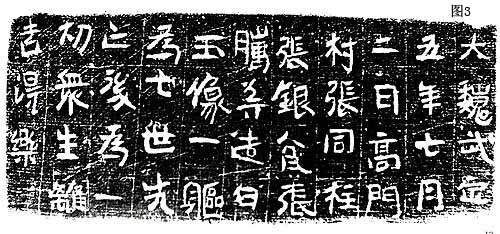 图3
大魏武定
五年七月
二日高門
村張同柱
張銀張
騰等造白
玉像一軀
為七世先
亡後為一
切衆生離
苦得樂